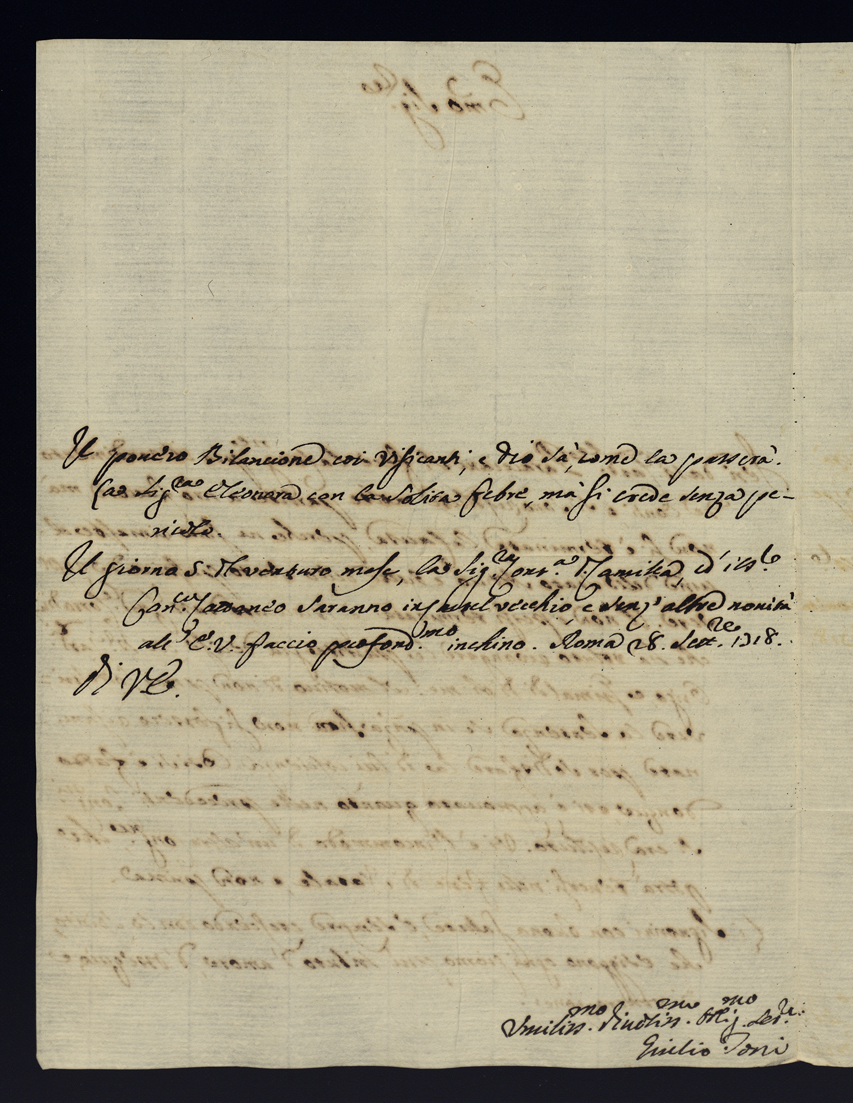 Il povero Bilancione coi visicanti, e dio sà, come la passerà.
La Sig.ra Eleonora con la solita febre, mà si crede senza pe-
ricolo.
Il giorno 5. del venturo mese, la Sig.ra Cons.a Mamilia, ed il S.r
Con.te saranno in Castel vecchio, e senz' altre novità
all' E. V. faccio profond.mo inchino. Roma 28. Sett.re 1718.
Di V. E.
Umiliss.mo Divotiss.mo Obblig.mo Ser.re
Giulio